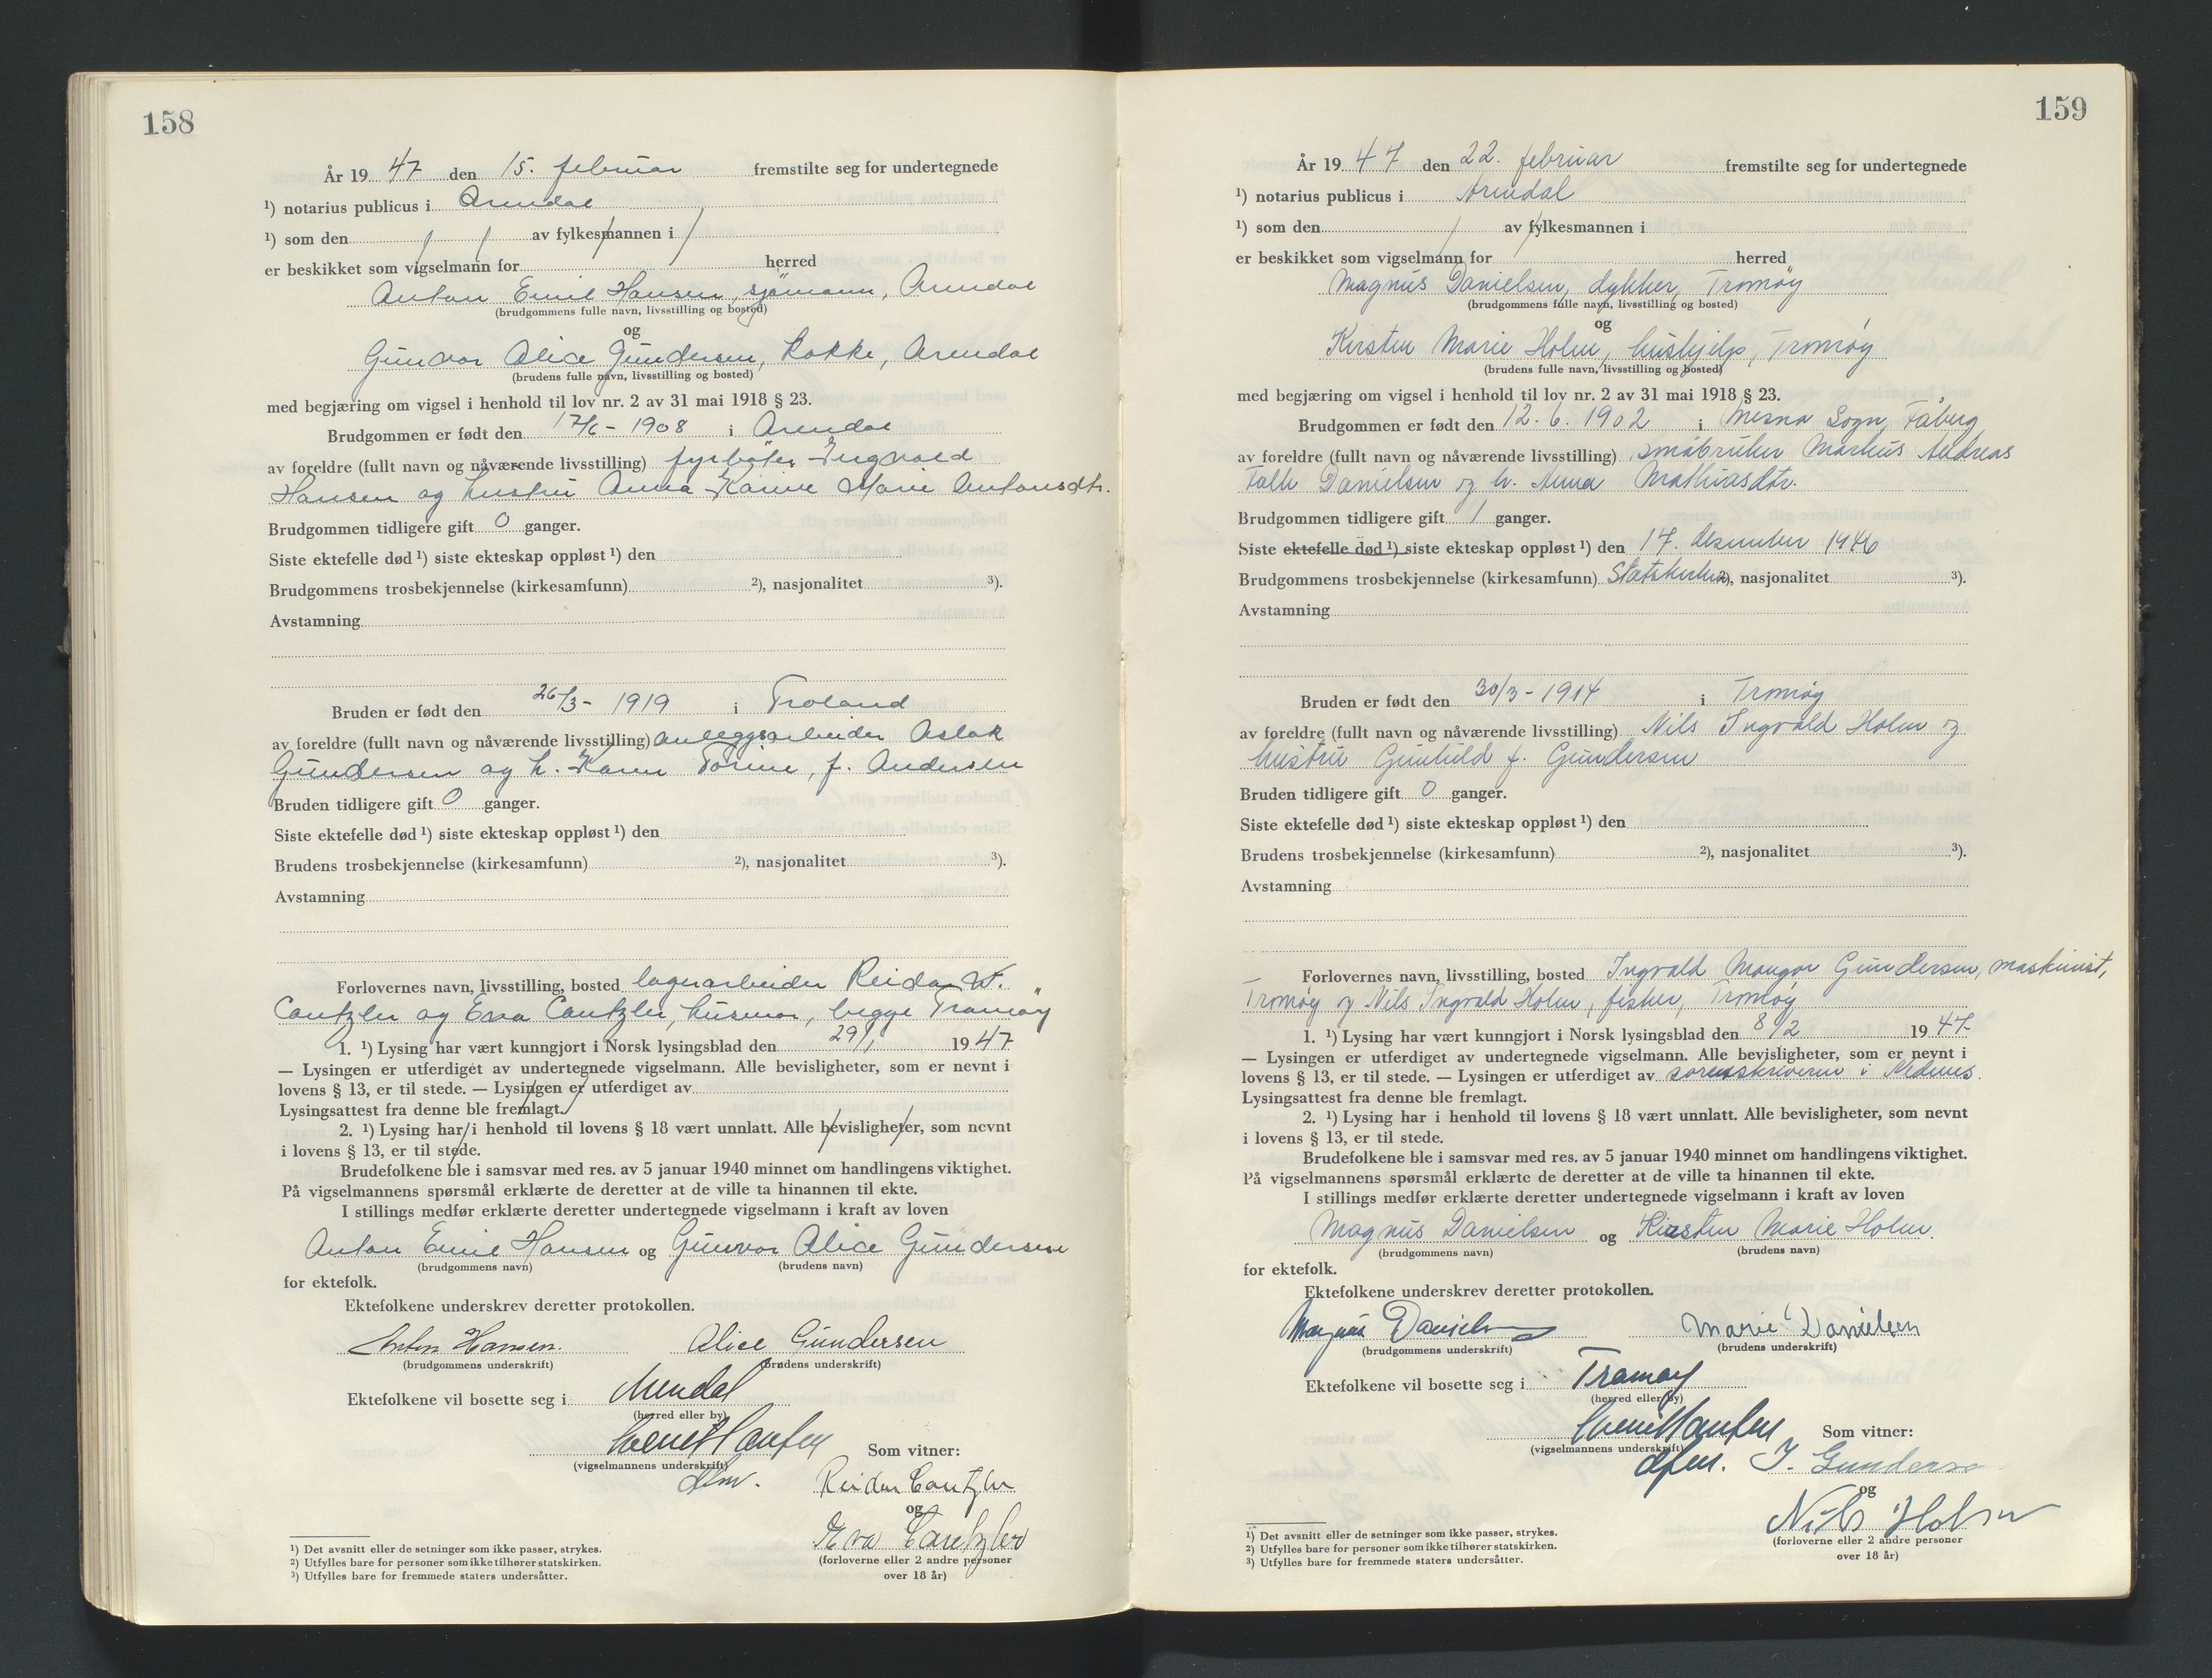 158
År 19 47 den 15. februar fremstilte seg for undertegnede
¹) notarius publicus i Arendal
¹) som den av fylkesmannen i
er beskikket som vigselmann for herred
Anton Emil Hansen, sjømann, Arendal
(brudgommens fulle navn, livsstilling og bosted)
og
Gunvor Alice Gundersen, kokke, Arendal
(brudens fulle navn, livsstilling og bosted)
med begjæring om vigsel i henhold til lov nr. 2 av 31 mai 1918 § 23.
Brudgommen er født den 17/6 - 1908 i Arendal
av foreldre (fullt navn og nåværende livsstilling) fyrbøter Ingvald
Hansen og hustru Anna Karine Marie Antonsdtr.
Brudgommen tidligere gift 0 ganger.
Siste ektefelle død ¹) siste ekteskap oppløst ¹) den
Brudgommens trosbekjennelse (kirkesamfunn) ²), nasjonalitet ³).
Avstamning
Bruden er født den 26/3 - 1919 i Froland
av foreldre (fullt navn og nåværende livsstilling) anleggsarbeider Aslak
Gundersen og h. Karen Torine, f. Andersen
Bruden tidligere gift 0 ganger.
Siste ektefelle død ¹) siste ekteskap oppløst ¹) den
Brudens trosbekjennelse (kirkesamfunn) ²), nasjonalitet ³).
Avstamning
Forlovernes navn, livsstilling, bosted lagerarbeider Reidar W.
Cantzler og Eva Cantzler, husmor, begge Tromøy
1. ¹) Lysing har vært kunngjort i Norsk lysingsblad den 29/1 19 47
— Lysingen er utferdiget av undertegnede vigselmann. Alle bevisligheter, som er nevnt i
lovens § 13, er til stede. — Lysingen er utferdiget av
Lysingsattest fra denne ble fremlagt.
2. ¹) Lysing har i henhold til lovens § 18 vært unnlatt. Alle bevisligheter, som nevnt
i lovens § 13, er til stede.
Brudefolkene ble i samsvar med res. av 5 januar 1940 minnet om handlingens viktighet.
På vigselmannens spørsmål erklærte de deretter at de ville ta hinannen til ekte.
I stillings medfør erklærte deretter undertegnede vigselmann i kraft av loven
Anton Emil Hansen og Gunvor Alice Gundersen
(brudgommens navn) (brudens navn)
for ektefolk.
Ektefolkene underskrev deretter protokollen.
Anton Hansen. Alice Gundersen
(brudgommens underskrift) (brudens underskrift)
Ektefolkene vil bosette seg i Arendal
(herred eller by)
Som vitner:
(vigselmannens underskrift)
Reidar Cantzler
og
Eva Cantzler
(forloverne eller 2 andre personer
over 18 år)
¹) Det avsnitt eller de setninger som ikke passer, strykes.
²) Utfylles bare for personer som ikke tilhører statskirken.
³) Utfylles bare for fremmede staters undersåtter.
159
År 19 47 den 22. februar fremstilte seg for undertegnede
¹) notarius publicus i Arendal
¹) som den av fylkesmannen i
er beskikket som vigselmann for herred
Magnus Danielsen, dykker, Tromøy
(brudgommens fulle navn, livsstilling og bosted)
og
Kirsten Marie Holm, hushjelp, Tromøy
(brudens fulle navn, livsstilling og bosted)
med begjæring om vigsel i henhold til lov nr. 2 av 31 mai 1918 § 23.
Brudgommen er født den 12. 6. 1902 i Mesna Sogn, Fåberg
av foreldre (fullt navn og nåværende livsstilling) småbruker Markus Andreas
Falk Danielsen og h. Anna Mathiasdtr.
Brudgommen tidligere gift 1 ganger.
Siste ektefelle død ¹) siste ekteskap oppløst ¹) den 17. desember 1946
Brudgommens trosbekjennelse (kirkesamfunn) Statskirken ²), nasjonalitet ³).
Avstamning
Bruden er født den 30/3 - 1914 i Tromøy
av foreldre (fullt navn og nåværende livsstilling) Nils Ingvald Holm og
hustru Gunhild f. Gundersen
Bruden tidligere gift 0 ganger.
Siste ektefelle død ¹) siste ekteskap oppløst ¹) den
Brudens trosbekjennelse (kirkesamfunn) ²), nasjonalitet ³).
Avstamning
Forlovernes navn, livsstilling, bosted Ingvald Mangor Gundersen, maskinist,
Tromøy og Nils Ingvald Holm, fisker, Tromøy
1. ¹) Lysing har vært kunngjort i Norsk lysingsblad den 8/2 19 47
— Lysingen er utferdiget av undertegnede vigselmann. Alle bevisligheter, som er nevnt i
lovens § 13, er til stede. — Lysingen er utferdiget av sorenskriveren i Nedenes.
Lysingsattest fra denne ble fremlagt.
2. ¹) Lysing har i henhold til lovens § 18 vært unnlatt. Alle bevisligheter, som nevnt
i lovens § 13, er til stede.
Brudefolkene ble i samsvar med res. av 5 januar 1940 minnet om handlingens viktighet.
På vigselmannens spørsmål erklærte de deretter at de ville ta hinannen til ekte.
I stillings medfør erklærte deretter undertegnede vigselmann i kraft av loven
Magnus Danielsen og Kirsten Marie Holm.
(brudgommens navn) (brudens navn)
for ektefolk.
Ektefolkene underskrev deretter protokollen.
Magnus Danielsen Marie Danielsen
(brudgommens underskrift) (brudens underskrift)
Ektefolkene vil bosette seg i Tromøy
(herred eller by)
Som vitner:
(vigselmannens underskrift)
dfm. I. Gunderse
og
Nils Holm
(forloverne eller 2 andre personer
over 18 år)
¹) Det avsnitt eller de setninger som ikke passer, strykes.
²) Utfylles bare for personer som ikke tilhører statskirken.
³) Utfylles bare for fremmede staters undersåtter.